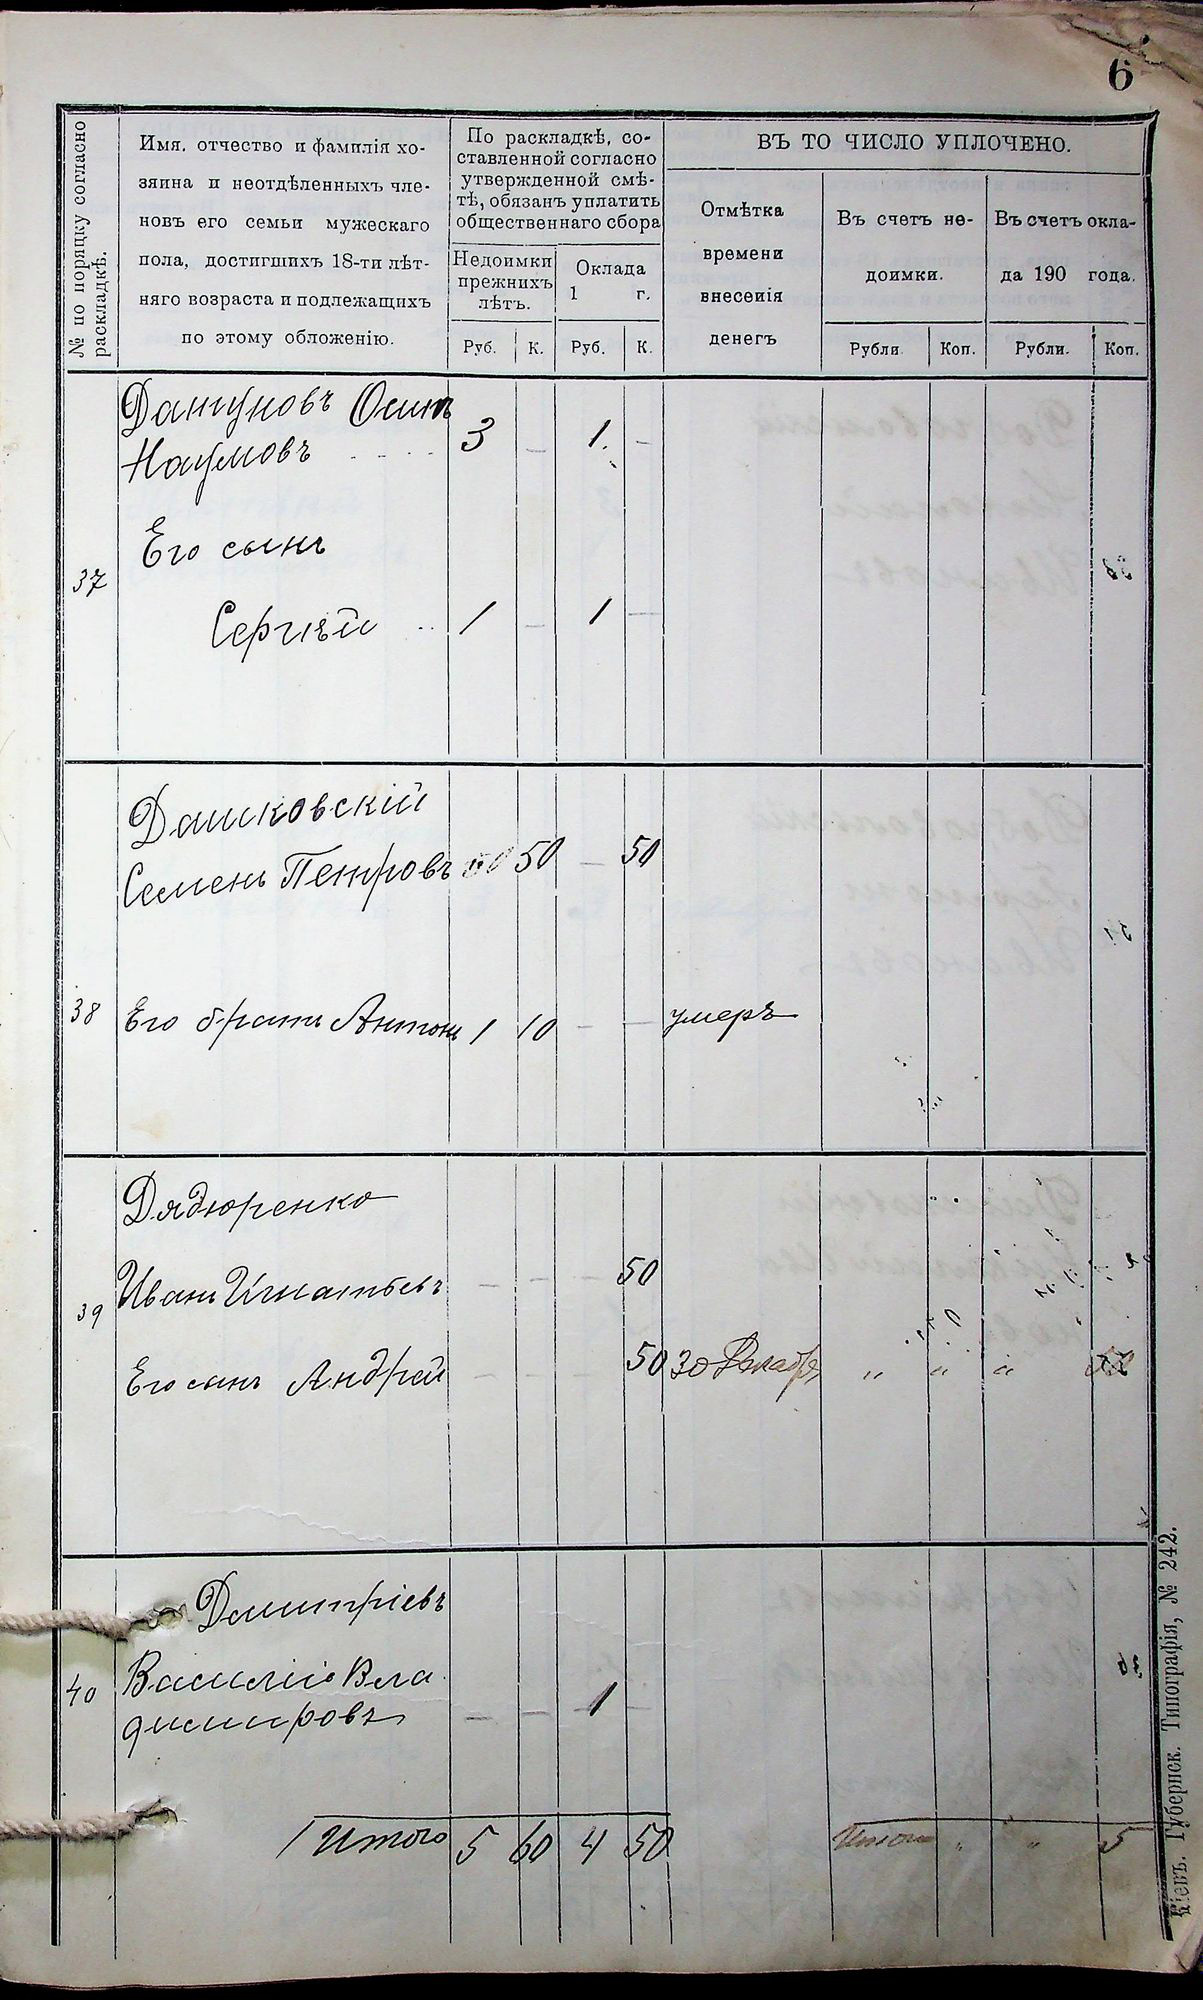 6
№ по порядку согласно
раскладкѣ.
Имя, отчество и фамилія хо-
зяина и неотдѣленныхъ чле-
новъ его семьи мужескаго
пола, достигшихъ 18-ти лѣт-
няго возраста и подлежащихъ
по этому обложенію.
По раскладкѣ, со-
ставленной согласно
утвержденной смѣ-
тѣ, обязанъ уплатить
общественнаго сбора
Недоимки
прежнихъ
лѣтъ.
Оклада
1 г.
Руб. К. Руб. К.
ВЪ ТО ЧИСЛО УПЛОЧЕНО.
Отмѣтка
времени
внесенія
денегъ
Въ счетъ не-
доимки.
Въ счетъ окла-
да 190 года.
Рубли Коп. Рубли. Коп.
Осипъ
Наумовъ 3 – 1. –
Его сынъ
37
Сергѣй 1 – 1 –
Дашковскій
Семенъ Петровъ 50 – 50
38 Его братъ Антонъ 1 10 – – умеръ
Дядюренко
Иванъ Игнатьевъ – – – 50
39
Его сынъ Андрей – – – 50 30 Декабря " " " 50
Дмитріевъ
40 Василій Вла
димировъ – – 1 –
Итого 5 60 4 50 Итого " " 5
Кіевъ. Губернск. Типографія, № 242.